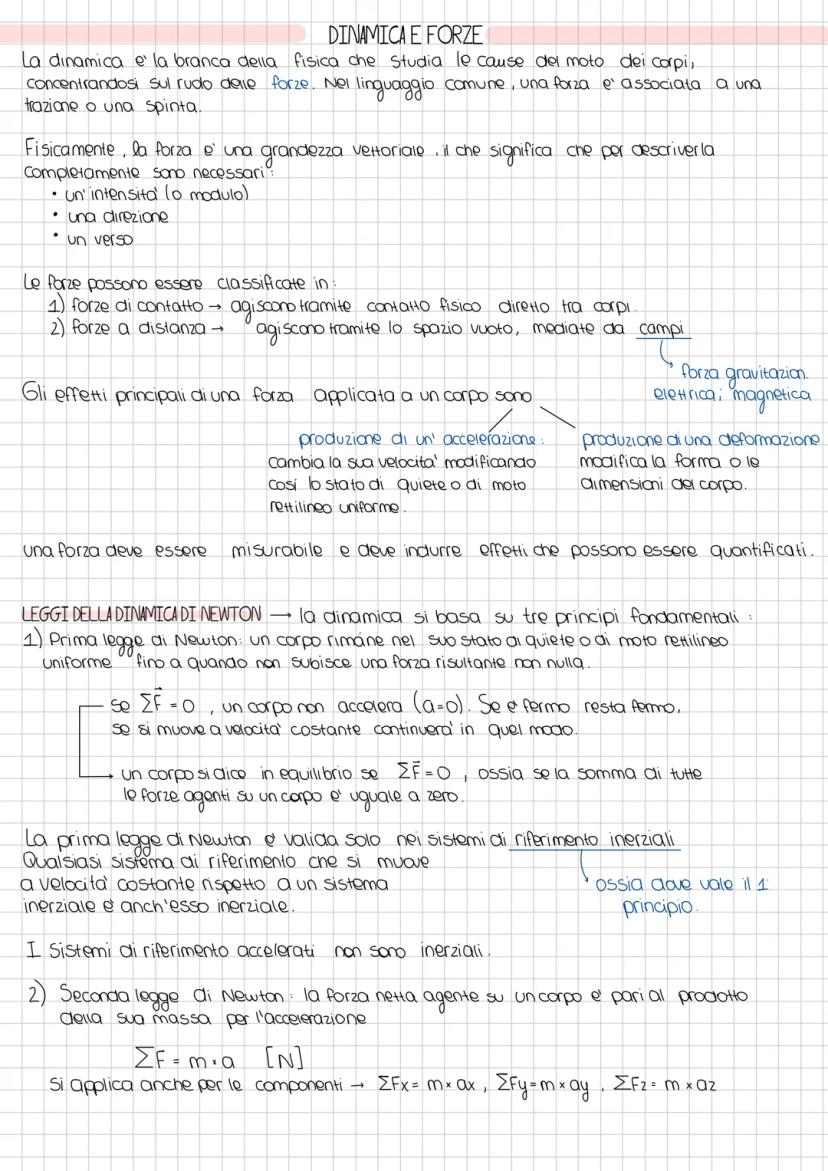 DINAMICA E FORZE
La dinamica e' la branca della fisica che studia le cause del moto dei corpi,
concentrandosi sul ruolo delle forze. Nel linguaggio comune, una forza e' associata a una
trazione o una spinta.
Fisicamente, la forza e' una grandezza vettoriale, il che significa che per descriverla
completamente sono necessari:
• un'intensita' (o modulo)
• una direzione
• un verso
Le forze possono essere classificate in:
1) forze di contatto → agiscono tramite contatto fisico diretto tra corpi.
2) forze a distanza → agiscono tramite lo spazio vuoto, mediate da campi
forza gravitazion.
elettrica; magnetica
Gli effetti principali di una forza applicata a un corpo sono
produzione di un' accelerazione:
cambia la sua velocita' modificando
così lo stato di quiete o di moto
rettilineo uniforme.
produzione di una deformazione
modifica la forma o le
dimensioni del corpo.
una forza deve essere misurabile e deve indurre effetti che possono essere quantificati.
LEGGI DELLA DINAMICA DI NEWTON → la dinamica si basa su tre principi fondamentali:
1) Prima legge di Newton: un corpo rimane nel suo stato di quiete o di moto rettilineo
uniforme fino a quando non subisce una forza risultante non nulla.
se ΣF⃗ = 0, un corpo non accelera (a=0). Se è fermo resta fermo,
se si muove a velocita' costante continuera' in quel modo.
un corpo si dice in equilibrio se ΣF⃗ = 0, ossia se la somma di tutte
le forze agenti su un corpo e' uguale a zero.
La prima legge di Newton e' valida solo nei sistemi di riferimento inerziali
Qualsiasi sistema di riferimento che si muove
a velocita' costante rispetto a un sistema
inerziale è anch'esso inerziale.
ossia dove vale il 1°
principio.
I sistemi di riferimento accelerati non sono inerziali.
2) Seconda legge di Newton: la forza netta agente su un corpo e' pari al prodotto
della sua massa per l'accelerazione
ΣF = m · a [N]
Si applica anche per le componenti → ΣFx = m × ax, ΣFy = m × ay, ΣFz = m × az